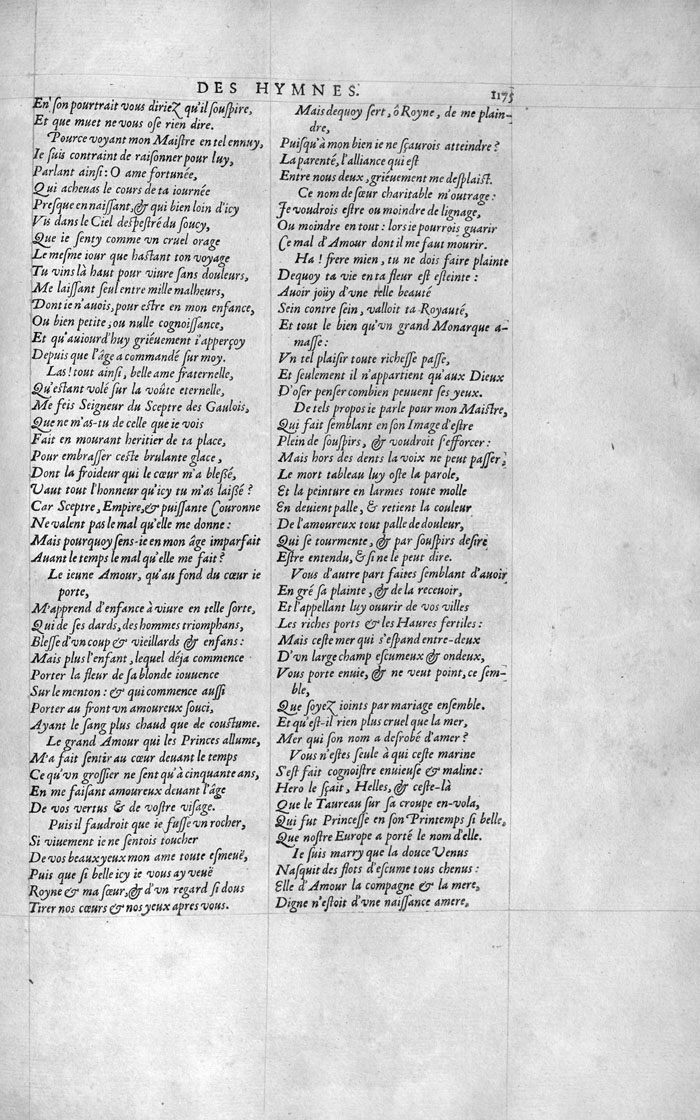 DES HYMNES.
1175
En' son pourtrait vous diriez qu'il souspire,
Et que muet ne vous ose rien dire.
Pource voyant mon Maistre en tel ennuy,
Ie suis contraint de raisonner pour luy,
Parlant ainsi: O ame fortunée,
Qui acheuas le cours de ta iournée
Presque en naissant, & qui bien loin d'icy
Vis dans le Ciel despestré du soucy,
Que ie senty comme vn cruel orage
Le mesme iour que hastant ton voyage
Tu vins là haut pour viure sans douleurs,
Me laissant seul entre mille malheurs,
Dont ie n'auois, pour estre en mon enfance,
Ou bien petite, ou nulle cognoissance,
Et qu'auiourd'huy griéuement i'apperçoy
Depuis que l'âge a commandé sur moy.
Las! tout ainsi, belle ame fraternelle,
Qu'estant volé sur la voûte eternelle,
Me feis Seigneur du Sceptre des Gaulois,
Que ne m'as-tu de celle que ie vois
Fait en mourant heritier de ta place,
Pour embrasser ceste brulante glace,
Dont la froideur qui le cœur m'a blessé,
Vaut tout l'honneur qu'icy tu m'as laissé?
Car Sceptre, Empire, & puissante Couronne
Ne valent pas le mal qu'elle me donne:
Mais pourquoy sens-ie en mon âge imparfait
Auant le temps le mal qu'elle me fait?
Le ieune Amour, qu'au fond du cœur ie
porte,
M'apprend d'enfance à viure en telle sorte,
Qui de ses dards, des hommes triomphans,
Blesse d'vn coup & vieillards & enfans:
Mais plus l'enfant, lequel déja commence
Porter la fleur de sa blonde iouuence
Sur le menton: & qui commence aussi
Porter au front vn amoureux souci,
Ayant le sang plus chaud que de coustume.
Le grand Amour qui les Princes allume,
M'a fait sentir au cœur deuant le temps
Ce qu'vn grossier ne sent qu'à cinquante ans,
En me faisant amoureux deuant l'âge
De vos vertus & de vostre visage.
Puis il faudroit que ie fusse vn rocher,
Si viuement ie ne sentois toucher
De vos beaux yeux mon ame toute esmeuë,
Puis que si belle icy ie vous ay veuë
Royne & ma sœur, & d'vn regard si dous
Tirer nos cœurs & nos yeux apres vous.
Mais dequoy sert, ô Royne, de me plain-
dre,
Puisqu'à mon bien ie ne sçaurois atteindre?
La parenté, l'alliance qui est
Entre nous deux, griéuement me desplaist.
Ce nom de sœur charitable m'outrage:
Je voudrois estre ou moindre de lignage,
Ou moindre en tout: lors ie pourrois guarir
Ce mal d'Amour dont il me faut mourir.
Ha! frere mien, tu ne dois faire plainte
Dequoy ta vie en ta fleur est esteinte:
Auoir joüy d'vne telle beauté
Sein contre sein, valloit ta Royauté,
Et tout le bien qu'vn grand Monarque a-
masse:
Vn tel plaisir toute richesse passe,
Et seulement il n'appartient qu'aux Dieux
D'oser penser combien peuuent ses yeux.
De tels propos ie parle pour mon Maistre,
Qui fait semblant en son Image d'estre
Plein de souspirs, & voudroit s'efforcer:
Mais hors des dents la voix ne peut passer.
Le mort tableau luy oste la parole,
Et la peinture en larmes toute molle
En deuient palle, & retient la couleur
De l'amoureux tout palle de douleur,
Qui se tourmente, & par souspirs desire
Estre entendu, & si ne le peut dire.
Vous d'autre part faites semblant d'auoir
En gré sa plainte, & de la receuoir,
Et l'appellant luy ouurir de vos villes
Les riches ports & les Haures fertiles:
Mais ceste mer qui s'espand entre-deux
D'vn large champ escumeux & ondeux,
Vous porte enuie, & ne veut point, ce sem-
ble,
Que soyez ioints par mariage ensemble.
Et qu'est-il rien plus cruel que la mer,
Mer qui son nom a desrobé d'amer?
Vous n'estes seule à qui ceste marine
S'est fait cognoistre enuieuse & maline:
Hero le sçait, Helles, & ceste-là
Que le Taureau sur sa croupe en-vola,
Qui fut Princesse en son Printemps si belle,
Que nostre Europe a porté le nom d'elle.
Ie suis marry que la douce Venus
Nasquit des flots d'escume tous chenus:
Elle d'Amour la compagne & la mere,
Digne n'estoit d'vne naissance amere,